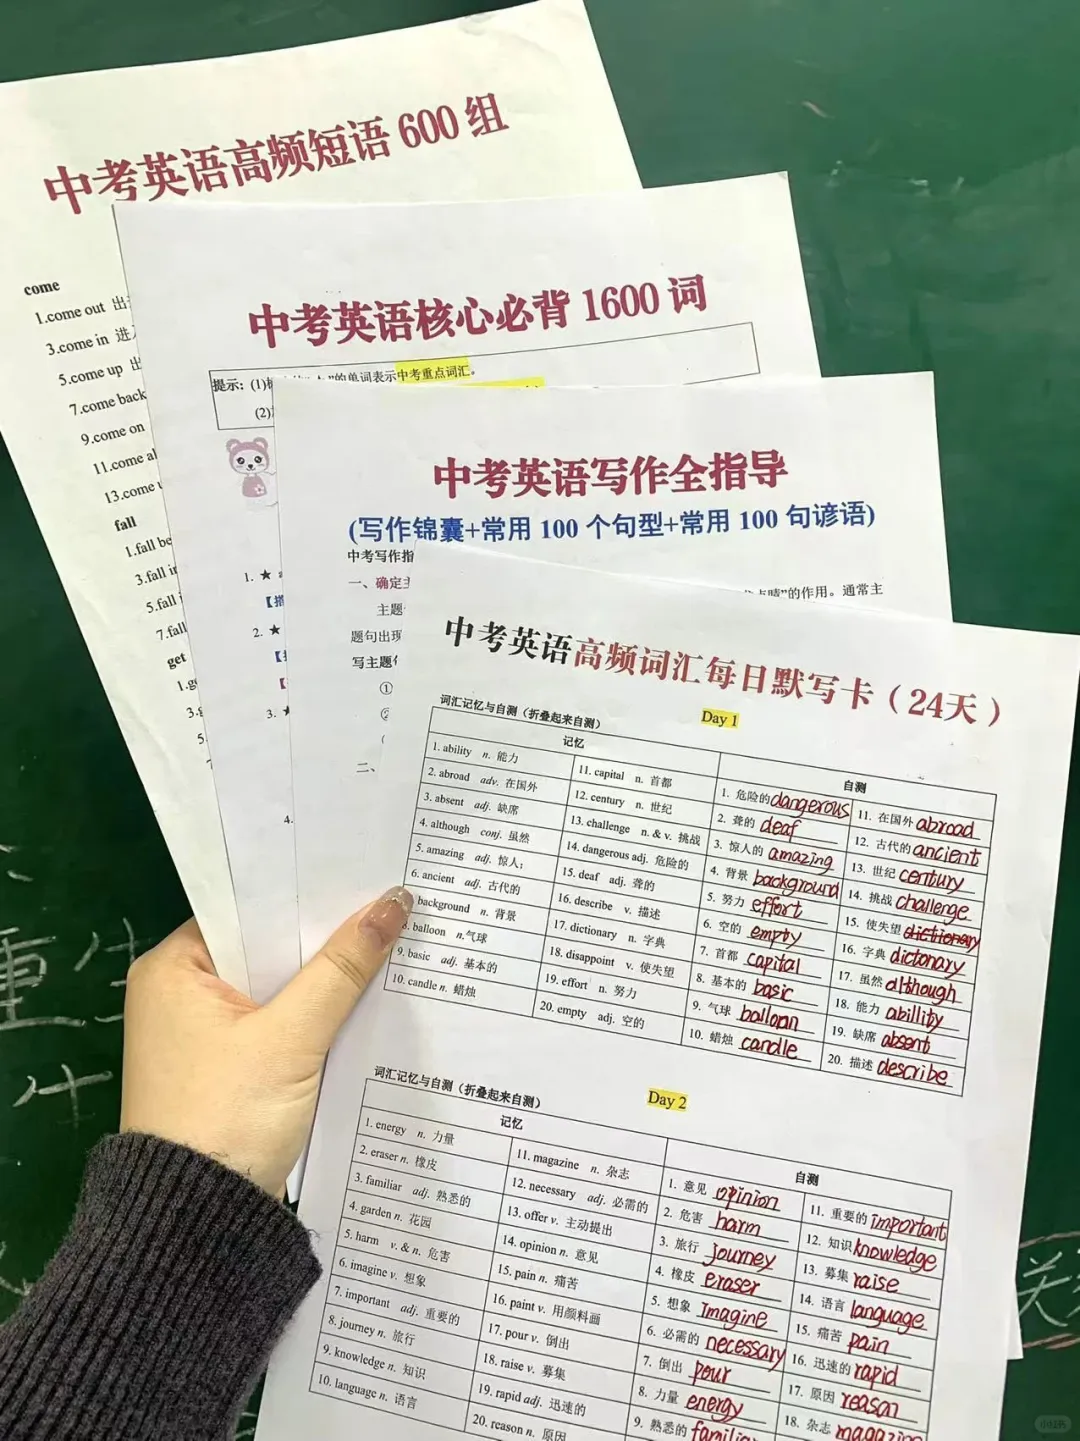 中考英语高频短语 600 组
come
1.come out
3.come in
5.come up
7.come back
9.come on
11.come
13.come
fall
1.fall
3.fall
5.fall
7.fall
get
中考英语核心必背 1600 词
提示：(1) ”的单词表示中考重点词汇。
(2)
1. ★
2. ★
3.
4.
中考英语写作全指导
(写作锦囊+常用 100 个句型+常用 100 句谚语)
中考写作指
一、确定主
”的作用。通常主
主题
题句出现
写主题
①
二、
中考英语高频词汇每日默写卡（24天）
词汇记忆与自测（折叠起来自测）
Day 1
记忆
自测
1. ability n. 能力
2. abroad adv. 在国外
3. absent adj. 缺席
4. although conj. 虽然
5. amazing adj. 惊人;
6. ancient adj. 古代的
background n. 背景
8. balloon n.气球
9. basic adj. 基本的
10. candle n. 蜡烛
11. capital n. 首都
12. century n. 世纪
13. challenge n. & v. 挑战
14. dangerous adj. 危险的
15. deaf adj. 聋的
16. describe v. 描述
17. dictionary n. 字典
18. disappoint v. 使失望
19. effort n. 努力
20. empty adj. 空的
1. 危险的 dangerous
2. 聋的 deaf
3. 惊人的 amazing
4. 背景 background
5. 努力 effort
6. 空的 empty
7. 首都 capital
8. 基本的 basic
9. 气球 balloon
10. 蜡烛 candle
11. 在国外 abroad
12. 古代的 ancient
13. 世纪 century
14. 挑战 challenge
15. 使失望 dictionary
16. 字典 dictonary
17. 虽然 although
18. 能力 abillity
19. 缺席 absent
20. 描述 describe
词汇记忆与自测（折叠起来自测）
Day 2
记忆
自测
1. energy n. 力量
2. eraser n. 橡皮
3. familiar adj. 熟悉的
4. garden n. 花园
5. harm v. & n. 危害
6. imagine v. 想象
7. important adj. 重要的
8. journey n. 旅行
9. knowledge n. 知识
10. language n. 语言
11. magazine n. 杂志
12. necessary adj. 必需的
13. offer v. 主动提出
14. opinion n. 意见
15. pain n. 痛苦
16. paint v. 用颜料画
17. pour v. 倒出
18. raise v. 募集
19. rapid adj. 迅速的
20. reason n. 原因
1. 意见 opinion
2. 危害 harm
3. 旅行 journey
4. 橡皮 eraser
5. 想象 Imagine
6. 必需的 necessary
7. 倒出 pour
8. 力量 energy
9. 熟悉的
11. 重要的 important
12. 知识 knowledge
13. 募集 raise
14. 语言 language
15. 痛苦 pain
16. 迅速的 rapid
17. 原因 reason
18. 杂志
重生
生
关
小红书